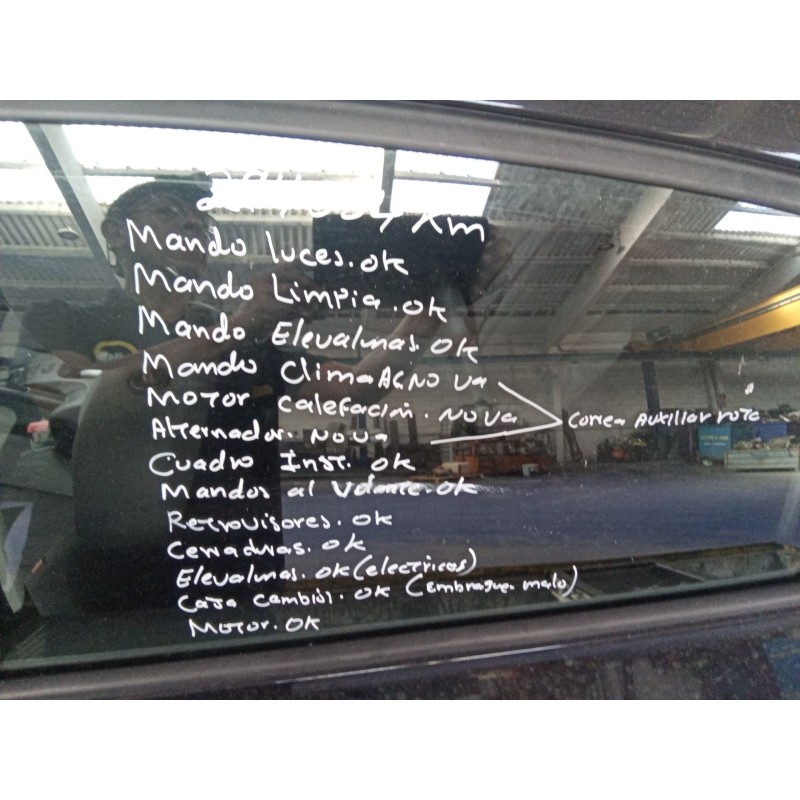 Km
Mando luces. ok
Mando Limpia. ok
Mando Elevalunas. ok
Mando Clima AC. NO va
Motor calefación. NO va
Alternador. NO va
Correa Auxiliar rota
Cuadro Inst. ok
Mandos al Volante. ok
Retrovisores. ok
Cerraduras. ok
Elevalunas. ok (electricos)
Caja cambios. ok (embrague. malo)
Motor. OK